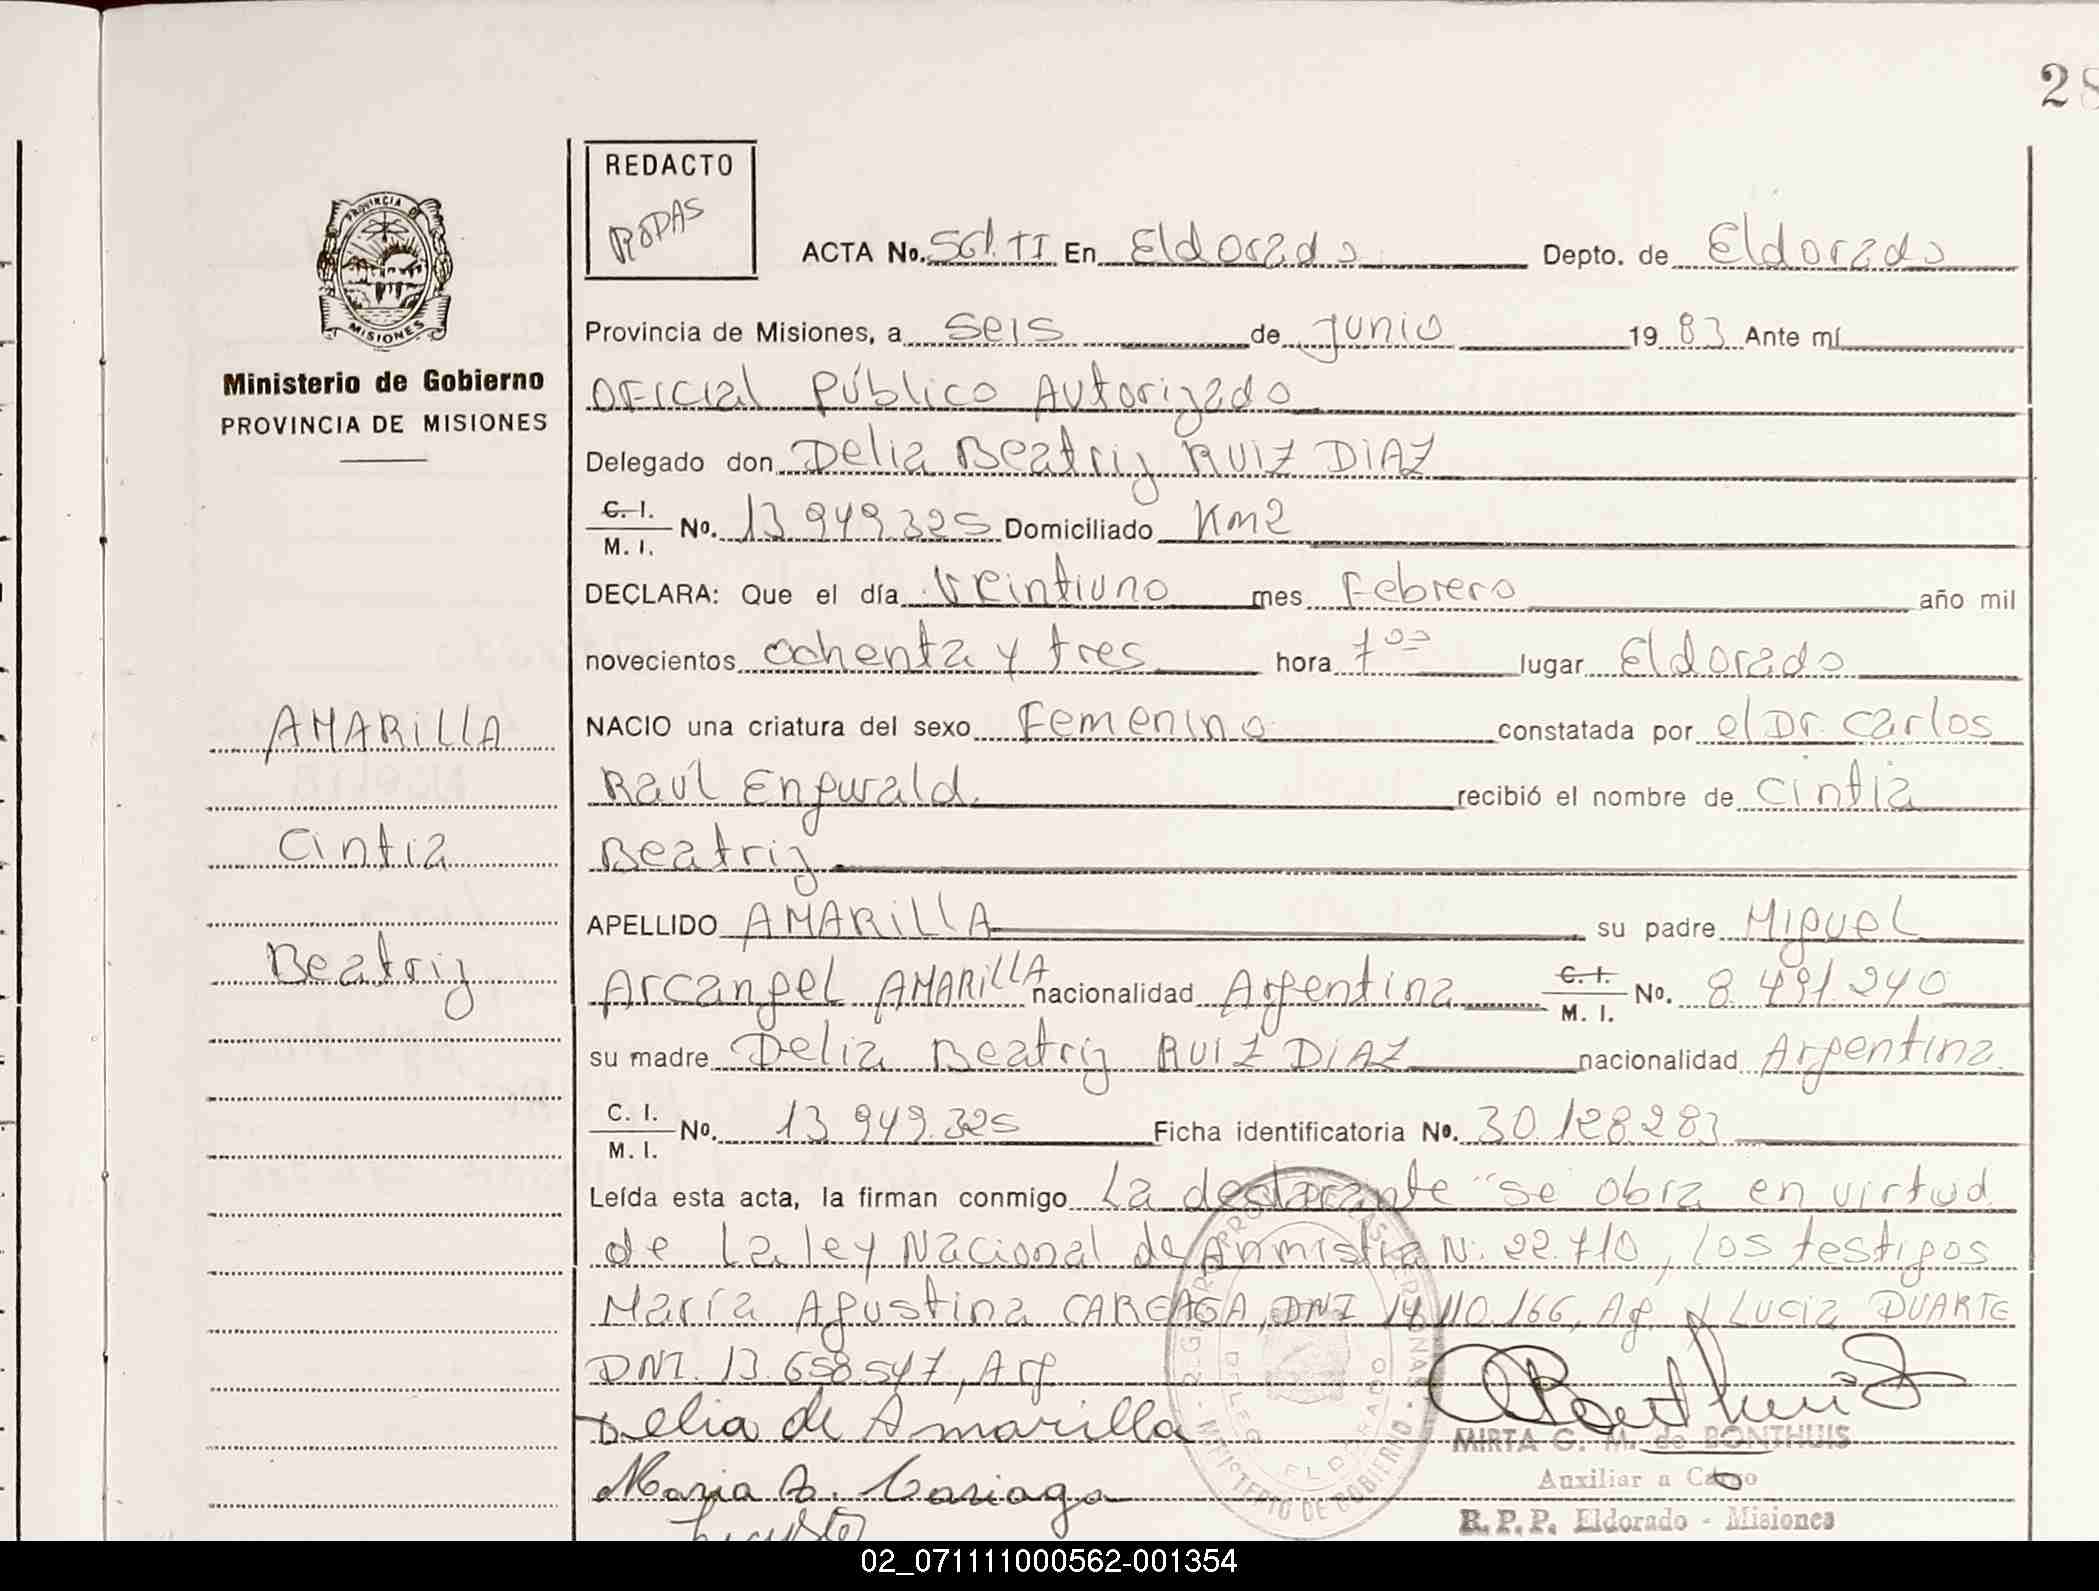 28
REDACTO
RODAS
PROVINCIA DE
MISIONES
Ministerio de Gobierno
PROVINCIA DE MISIONES
ACTA No. 561. TI En Eldorado Depto. de Eldorado
Provincia de Misiones, a seis de junio 19 83 Ante mí
Oficial Público Autorizado
Delegado don Delia Beatriz RUIZ DIAZ
C. I. / M. I. No. 13.949.325 Domiciliado Km2
DECLARA: Que el día Veintiuno mes Febrero año mil
novecientos ochenta y tres hora 7 00 lugar Eldorado
AMARILLA
NACIO una criatura del sexo Femenino constatada por el Dr. Carlos
Raúl Engwald. recibió el nombre de Cintia
Cintia
Beatriz
APELLIDO AMARILLA su padre Miguel
Beatriz
Arcangel AMARILLA nacionalidad Argentina C. I. / M. I. No. 8.491.240
su madre Delia Beatriz RUIZ DIAZ nacionalidad Argentina.
C. I. / M. I. No. 13.949.325 Ficha identificatoria No. 30.128.283
Leída esta acta, la firman conmigo La declarante "se obra en virtud
de la ley Nacional de Anmistia N: 22.710, los testigos
María Agustina CAREAGA, DNI 14.110.166, Ag. y Lucia DUARTE
DNI. 13.658.547, Arg
Delia de Amarilla
MIRTA C. M. de BONTHUIS
Maria A. Cariaga
Auxiliar a Cargo
R. P. P. Eldorado - Misiones
MINISTERIO DE GOBIERNO
ELDORADO
02_071111000562-001354